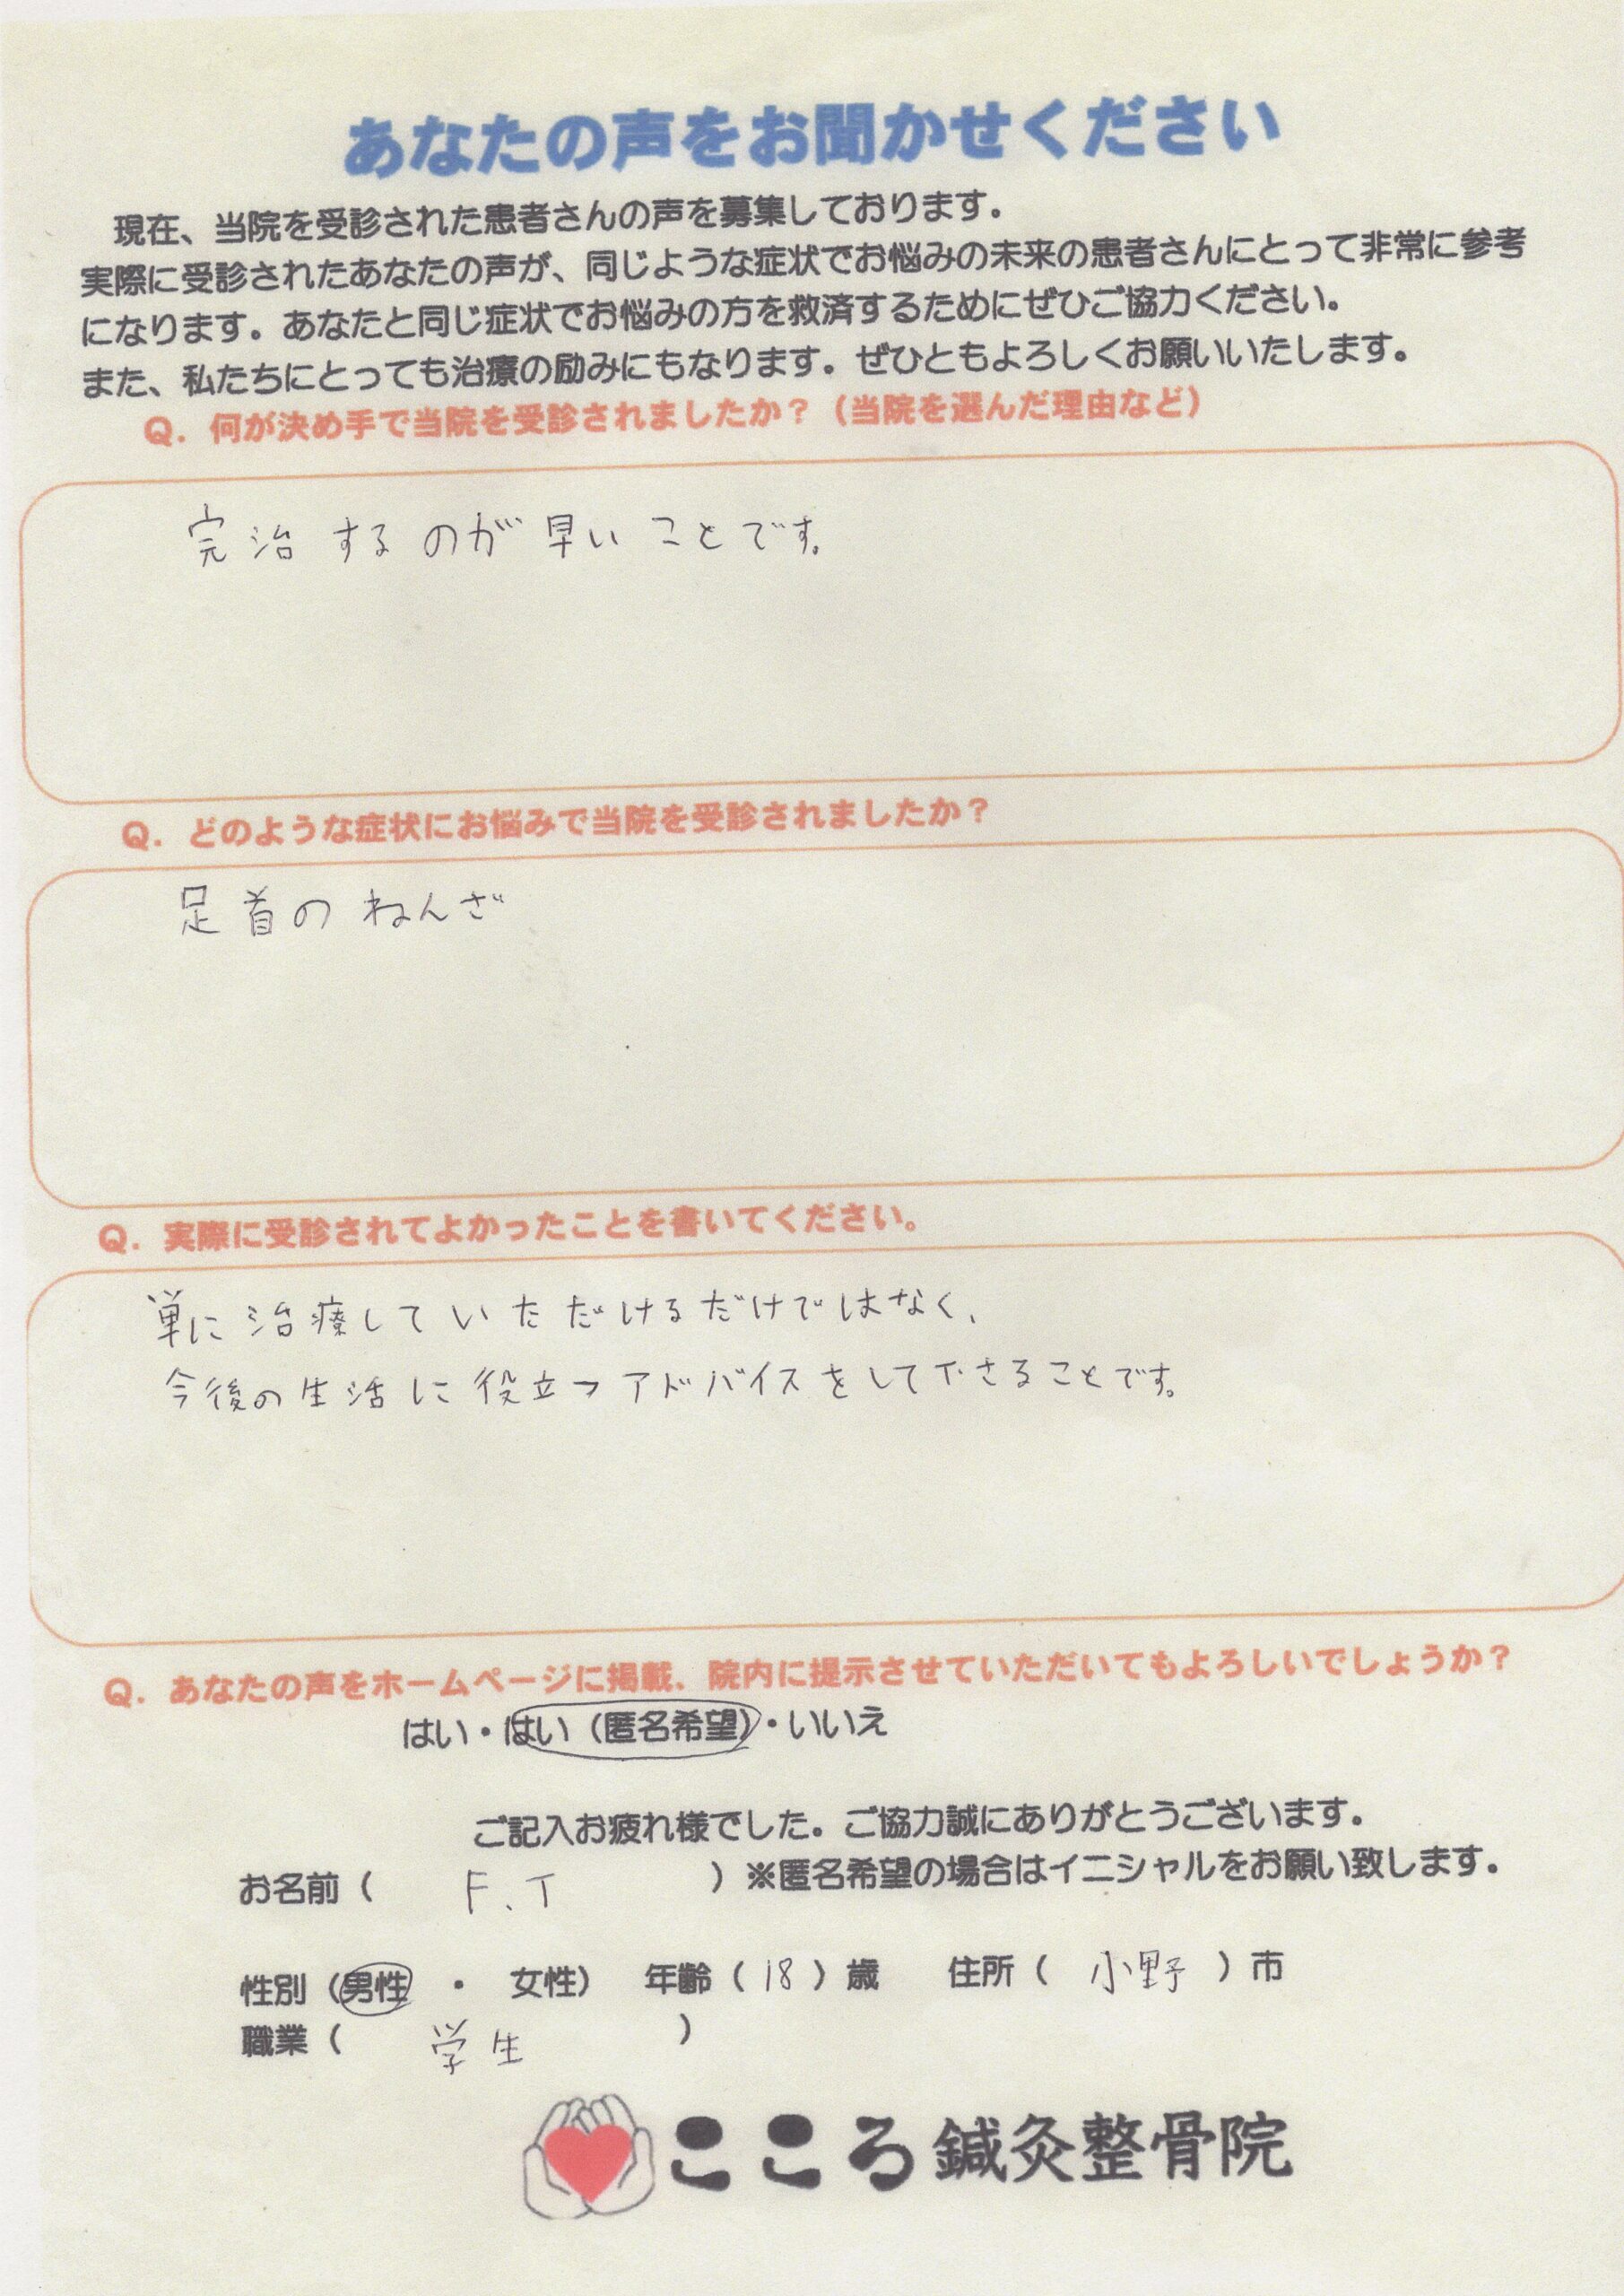 あなたの声をお聞かせください
現在、当院を受診された患者さんの声を募集しております。
実際に受診されたあなたの声が、同じような症状でお悩みの未来の患者さんにとって非常に参考
になります。あなたと同じ症状でお悩みの方を救済するためにぜひご協力ください。
また、私たちにとっても治療の励みにもなります。ぜひともよろしくお願いいたします。
Q. 何が決め手で当院を受診されましたか？（当院を選んだ理由など）
完治するのが早いことです。
Q. どのような症状にお悩みで当院を受診されましたか？
足首のねんざ
Q. 実際に受診されてよかったことを書いてください。
単に治療していただけるだけではなく、
今後の生活に役立つアドバイスをして下さることです。
Q. あなたの声をホームページに掲載、院内に提示させていただいてもよろしいでしょうか？
はい・はい（匿名希望）・いいえ
ご記入お疲れ様でした。ご協力誠にありがとうございます。
お名前（ F.T ）※匿名希望の場合はイニシャルをお願い致します。
性別（男性 ・ 女性） 年齢（18）歳 住所（ 小野 ）市
職業（ 学生 ）
こころ鍼灸整骨院